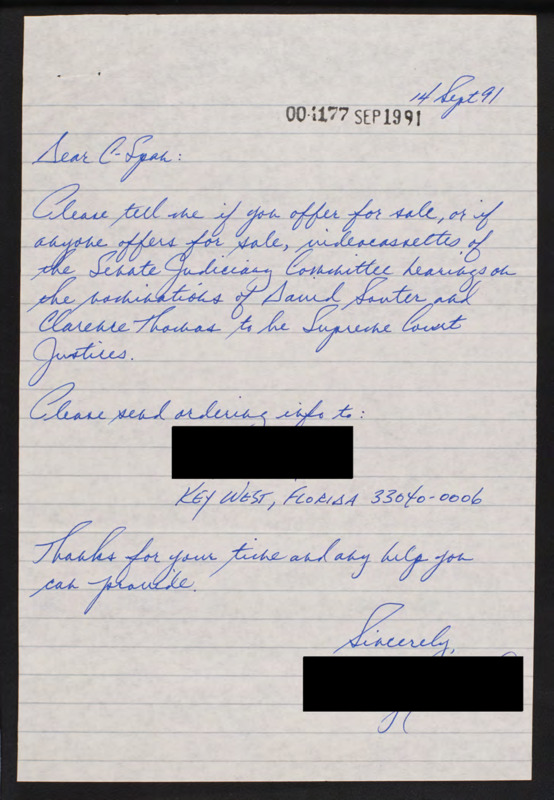 14 Sept 91
001177 SEP1991
Dear C-Span:
Please tell me if you offer for sale, or if
anyone offers for sale, videocassettes of
the Senate Judiciary Committee hearings on
the nominations of David Souter and
Clarence Thomas to be Supreme Court
Justices.
Please send ordering info to:
KEY WEST, FLORIDA 33040-0006
Thanks for your time and any help you
can provide.
Sincerely,